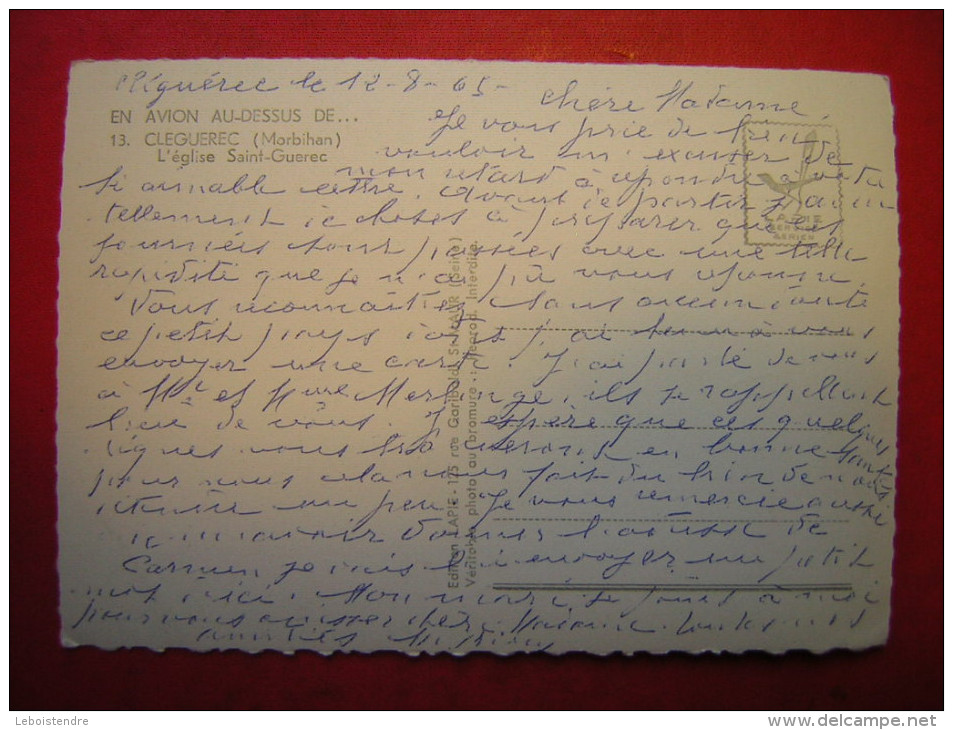 Cléguérec le 12-8-65-
Chère Madame,
EN AVION AU-DESSUS DE...
13. CLEGUEREC (Morbihan)
L'église Saint-Guerec
Je vous prie de bien
vouloir m'excuser de
mon retard à répondre à votre
si aimable lettre. Avant de partir j'avais
tellement de choses à préparer que les
journées sont passées avec une telle
rapidité que je n'ai pu vous répondre.
Vous reconnaîtrez sans aucun doute
ce petit pays dont j'ai tenu à vous
envoyer une carte. J'ai parlé de vous
à Mr et Mme ils se rappellent
bien de vous. J'espère que ces quelques
lignes vous trouveront en bonne santé
pour nous cela nous fait du bien de nous
un peu. Je vous remercie aussi
de m'avoir donné l'adresse de
Carmen, je vais lui envoyer un petit
mot d'ici. Mon mari se joint à moi
pour vous adresser chère Madame toutes nos
amitiés
LAPIE
SERVICE
AERIEN
Edition LAPIE - 125 rue Garibaldi St-MAUR (Seine)
Véritable photo au bromure - Reprod. Interdite
Leboistendre
www.delcampe.net